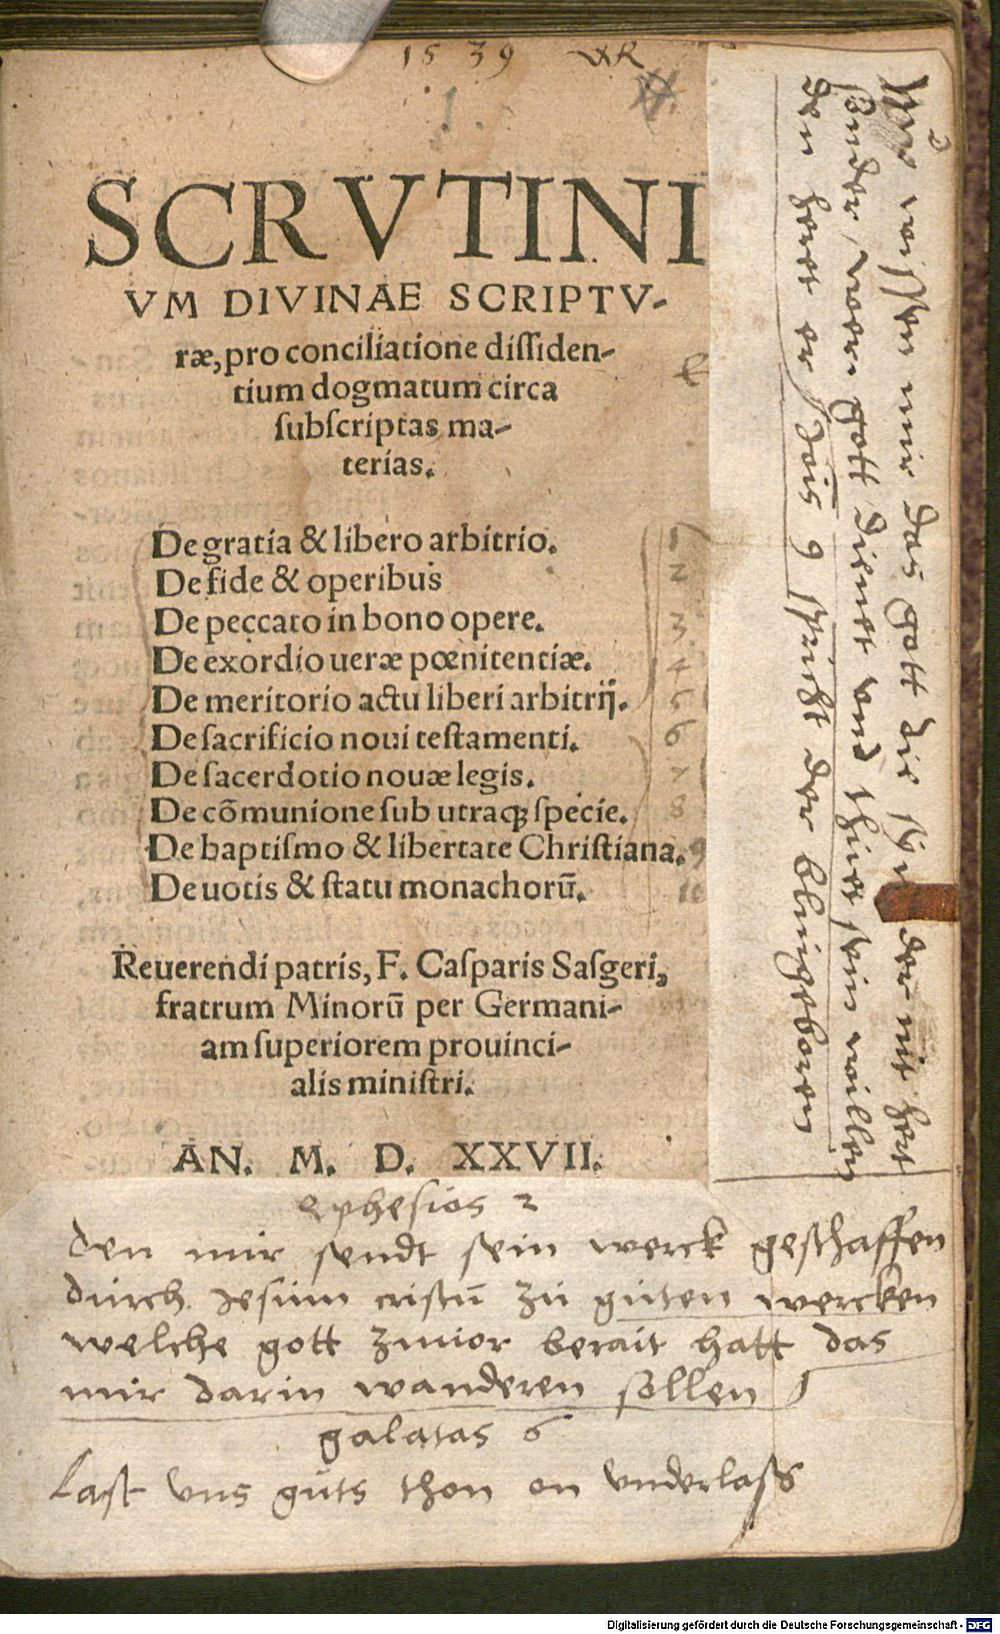 1539
1.
SCRVTINI
VM DIVINAE SCRIPTV-
ræ, pro conciliatione dissiden-
tium dogmatum circa
subscriptas ma-
terias.
De gratia & libero arbitrio. 1
De fide & operibus 2
De peccato in bono opere. 3
De exordio ueræ pœnitentiæ. 4
De meritorio actu liberi arbitrij. 5
De sacrificio noui testamenti. 6
De sacerdotio nouæ legis. 7
De cõmunione sub utraqꝫ specie. 8
De baptismo & libertate Christiana. 9
De uotis & statu monachorū. 10
Reuerendi patris, F. Casparis Sasgeri,
fratrum Minorū per Germani-
am superiorem prouinci-
alis ministri.
AN. M. D. XXVII.
Ephesios 2
den mir sendt sein werck geschaffen
durch Jesum cristū zu guten wercken
welche gott zuuor berait hatt das
mir darin wanderen sollen
galatas 6
Last vns guts thon on vnderlass
Mir wissen mir das gott die der nit hert
sunder wver gott dienet vnd thuet sein willen
den heret er Jois 9 spricht der blingeboren
Digitalisierung gefördert durch die Deutsche Forschungsgemeinschaft - DFG